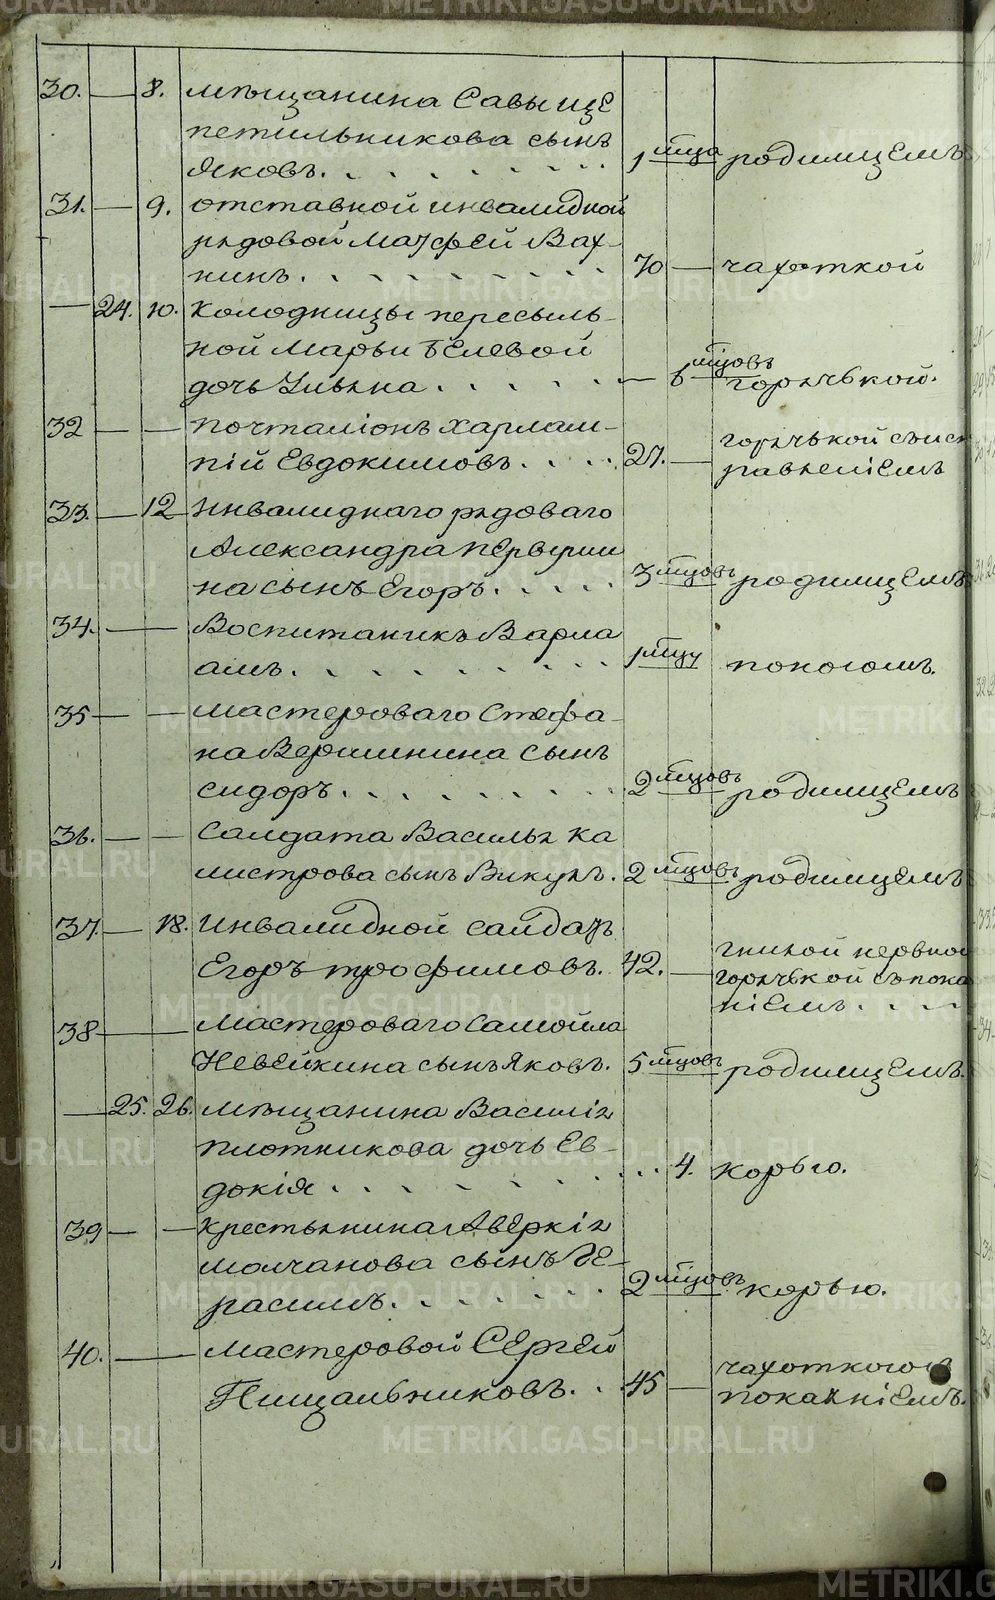 30. — 8. мѣщанина Савы ще
петильникова сынъ
Яковъ. 1 мца родимцемъ
31. — 9. отставной инвалидной
рядовой Матфей Вах-
нинъ. 70 — чахоткой
— 24. 10. Колодницы пересыль-
ной Марьи Бѣлевой
дочь Ульяна. — 6 мцовъ горячькой.
32 — — почталіонъ Харлам-
пій Евдокимовъ. 27. — горячькой съ
33. — 12 Инвалиднаго рядоваго
Александра первуши
на сынъ Егоръ. 3 мцовъ родимцемъ
34. — — Воспитаникъ Варла
амъ. 1 мцу поносомъ.
35 — — мастероваго Стефа-
на Вершинина сынъ
сидоръ. 2 мцовъ родимцемъ
36. — — Салдата Василья ка
листрова сынъ Викулъ. 2 мцовъ родимцемъ
37. — 18. Инвалидной салдатъ
Егоръ трофимовъ. 42. — гнилой нервной
горячькой съ пока
ніемъ.
38 — — Мастероваго Самойла
Невейкина сынъ Яковъ. 5 мцовъ родимцемъ.
— 25. 26. мѣщанина Василія
плотникова дочь Ев-
докія. 4. корью.
39 — — крестьянина Аверкія
молчанова сынъ Ге-
расимъ. 2 мцовъ корью.
40. — — мастеровой Сергей
Пищальниковъ. 45 — чахоткою съ
покаяніемъ.
METRIKI.GASO-URAL.RU